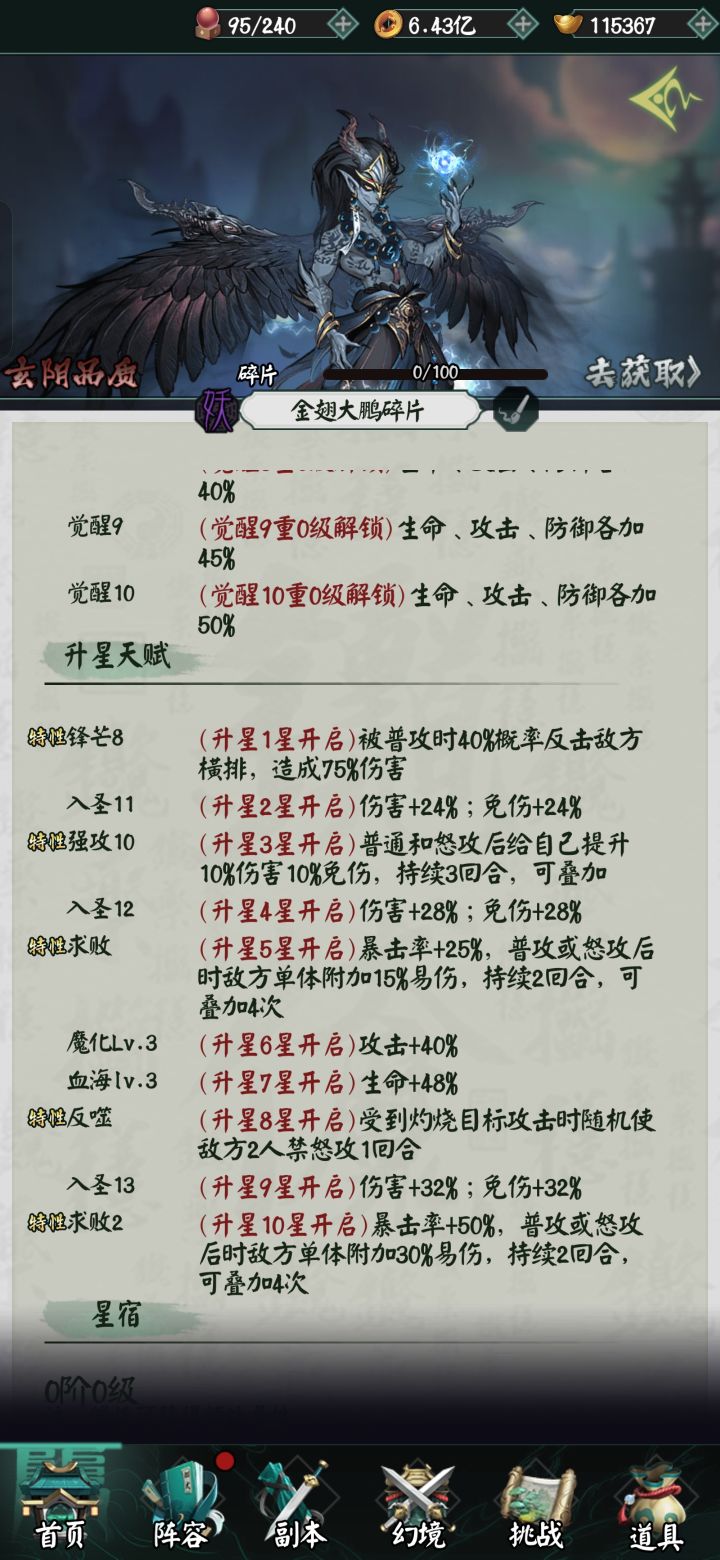 95/240 6.43亿 115367
玄阴品质 碎片 0/100 去获取》
妖 金翅大鹏碎片
40%
觉醒9 (觉醒9重0级解锁)生命、攻击、防御各加
45%
觉醒10 (觉醒10重0级解锁)生命、攻击、防御各加
50%
升星天赋
特性锋芒8 (升星1星开启)被普攻时40%概率反击敌方
横排，造成75%伤害
入圣11 (升星2星开启)伤害+24%；免伤+24%
特性强攻10 (升星3星开启)普通和怒攻后给自己提升
10%伤害10%免伤，持续3回合，可叠加
入圣12 (升星4星开启)伤害+28%；免伤+28%
特性求败 (升星5星开启)暴击率+25%，普攻或怒攻后
时敌方单体附加15%易伤，持续2回合，可
叠加4次
魔化Lv.3 (升星6星开启)攻击+40%
血海lv.3 (升星7星开启)生命+48%
特性反噬 (升星8星开启)受到灼烧目标攻击时随机使
敌方2人禁怒攻1回合
入圣13 (升星9星开启)伤害+32%；免伤+32%
特性求败2 (升星10星开启)暴击率+50%，普攻或怒攻
后时敌方单体附加30%易伤，持续2回合，
可叠加4次
星宿
0阶0级
首页 阵容 副本 幻境 挑战 道具